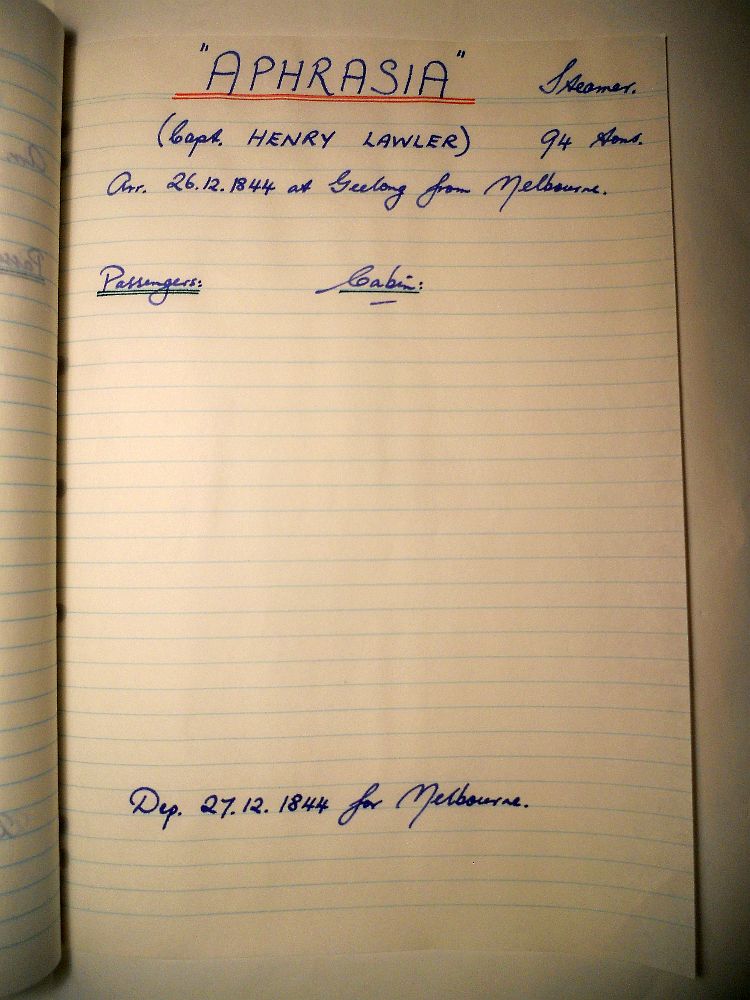 "APHRASIA" Steamer.
(Capt. HENRY LAWLER) 94 tons.
Arr. 26.12.1844 at Geelong from Melbourne.
Passengers: Cabin:
Dep. 27.12.1844 for Melbourne.